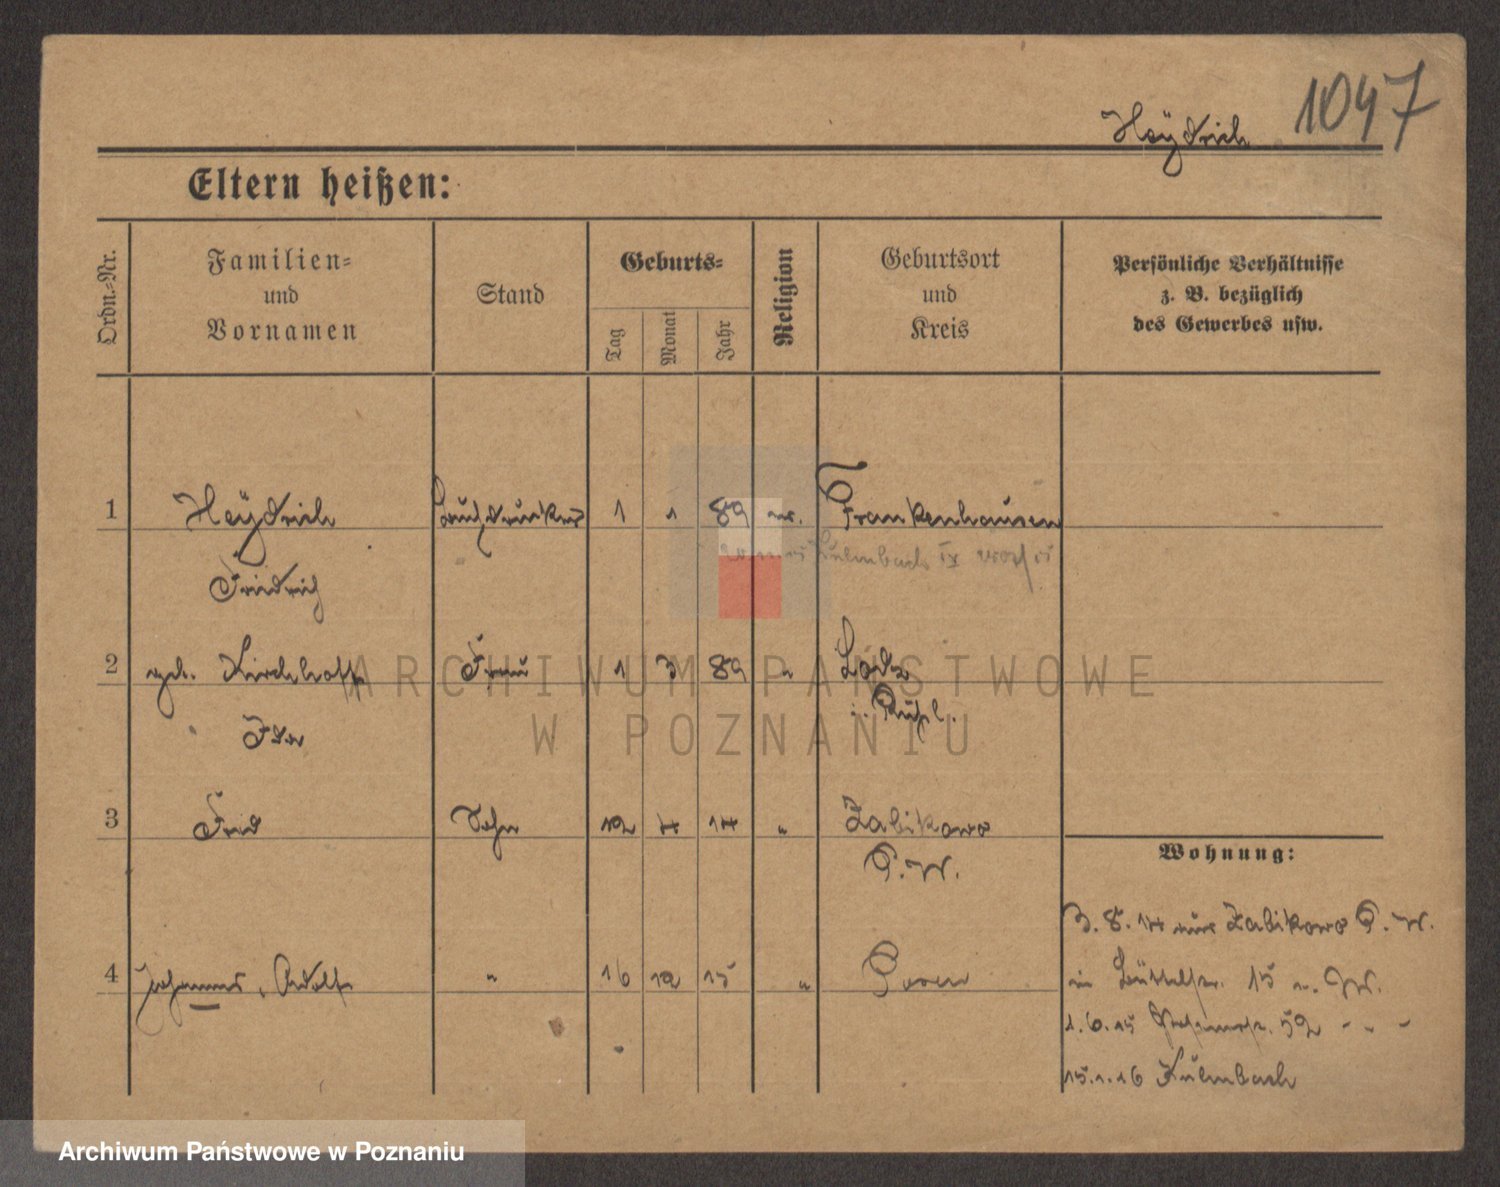 1047
Heydrich
Eltern heißen:
Ordn.-Nr.
Familien-
und
Vornamen
Stand
Geburts-
Tag
Monat
Jahr
Religion
Geburtsort
und
Kreis
Persönliche Verhältnisse
z. B. bezüglich
des Gewerbes usw.
1 Heydrich Buchdrucker 1 1 89 Frankenhausen
Kulmbach
Friedrich
2 geb. Kirchhoff Frau 1 3 89 " Lodz
i. Rußl.
Ida
3 Frid Sohn 12 4 14 " Zabikowo
P. W.
Wohnung:
3. 8. 14 aus Zabikowo P. W.
4 Johannes, Adolf " 16 12 15 " Posen
in 15 b. W.
1. 6. 15 52 " " "
15. 1. 16 Kulmbach
ARCHIWUM PAŃSTWOWE
W POZNANIU
Archiwum Państwowe w Poznaniu